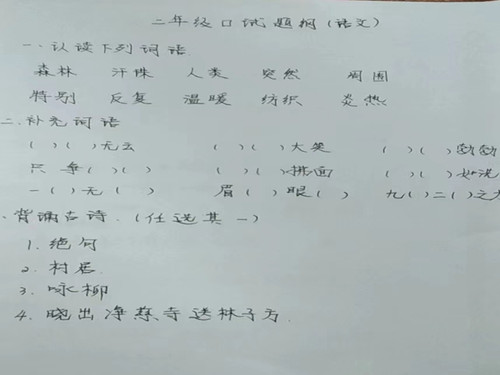 二年级口试题纲(语文)
一、认读下列词语
森林 汗珠 人类 突然 周围
特别 反复 温暖 纺织 炎热
二、补充词语
( )( )无云 ( )( )大笑 ( )( )勃勃
只争( )( ) ( )( )拂面 ( )( )如洗
一( )无( ) 眉( )眼( ) 九( )二( )之力
、背诵古诗.(任选其一)
1. 绝句
2. 村居
3. 咏柳
4. 晓出净慈寺送林子方.